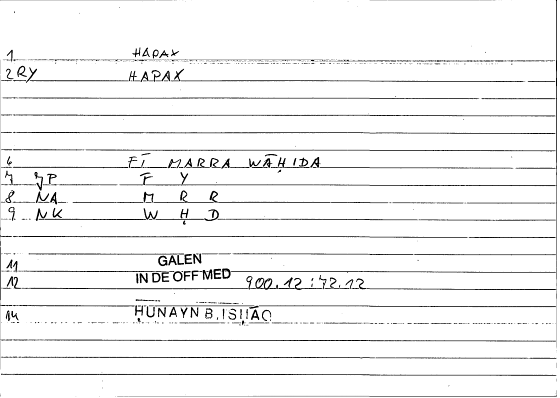 1 HAPAX
2 RY HAPAX
6 FĪ MARRA WĀḤIDA
7 JP F Y
8 NA M R R
9 NK W Ḥ D
11 GALEN
12 IN DE OFF MED 900.12:72.12
14 ḤUNAYN B. ISḤĀQ